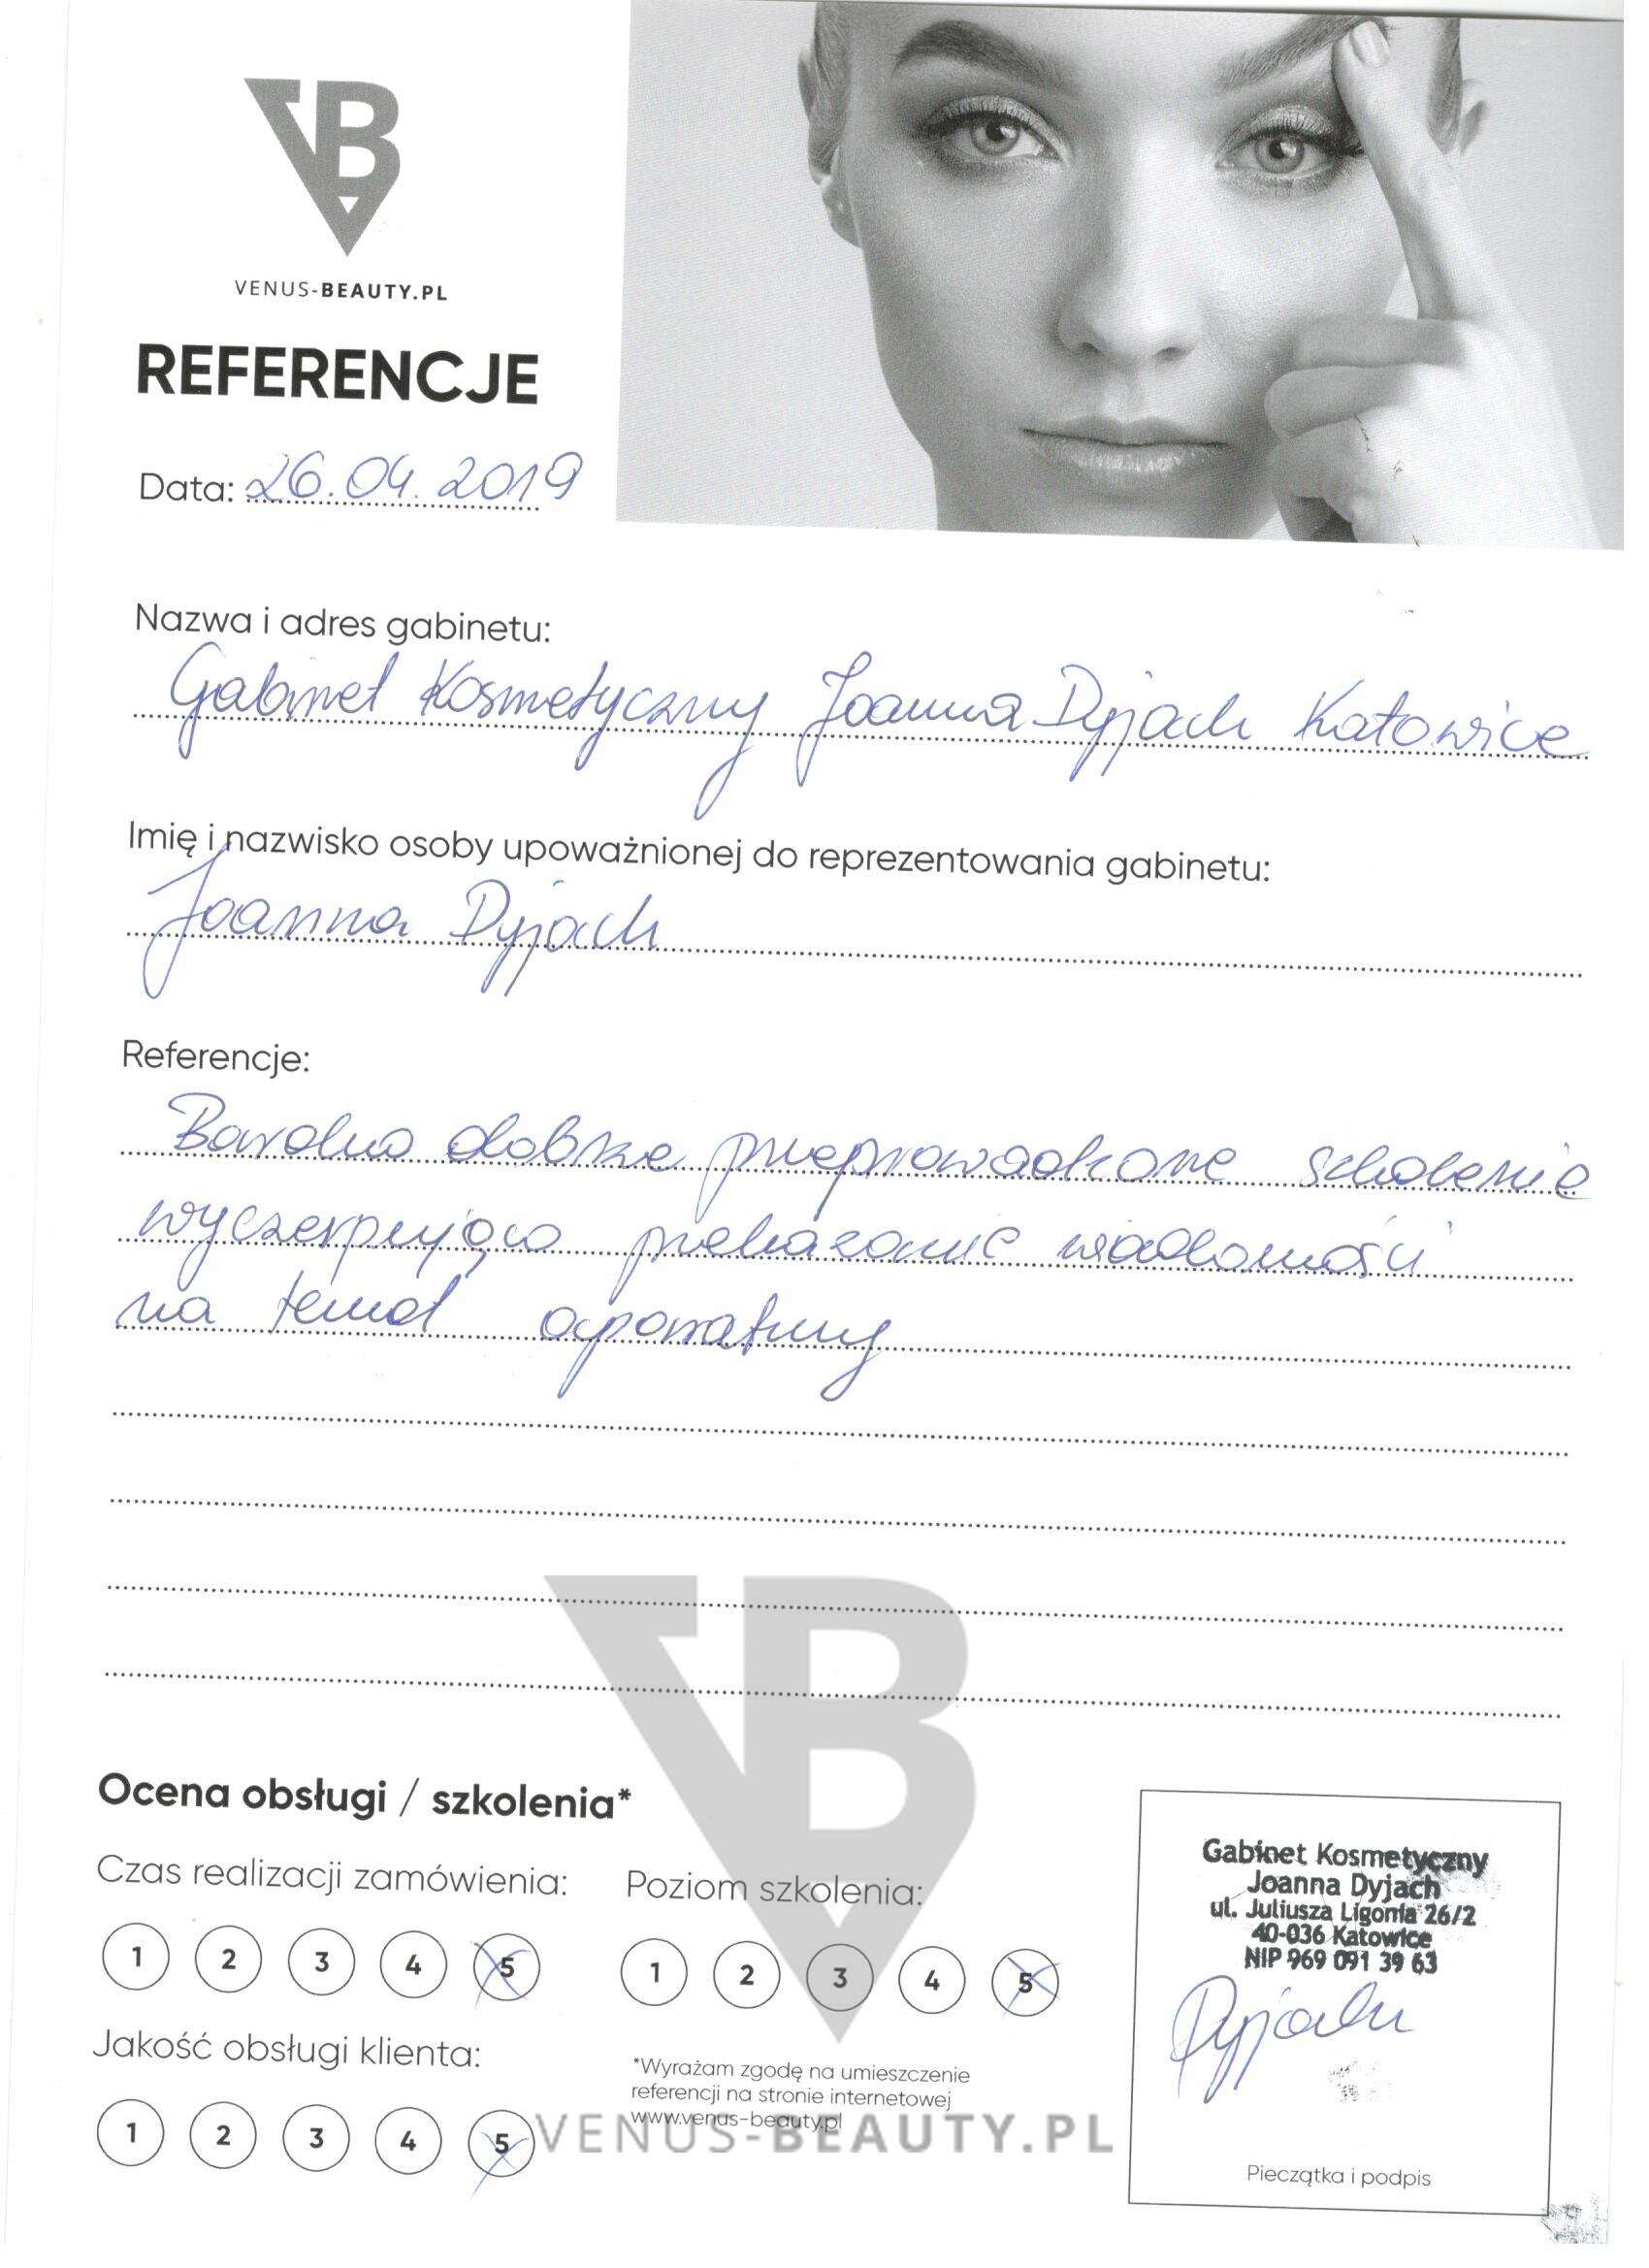 VB
VENUS-BEAUTY.PL
REFERENCJE
Data: 26.04.2019
Nazwa i adres gabinetu:
Gabinet Kosmetyczny Joanna Dyjach Katowice
Imię i nazwisko osoby upoważnionej do reprezentowania gabinetu:
Joanna Dyjach
Referencje:
Bardzo dobrze przeprowadzone szkolenie
wyczerpująco przekazanie wiadomości
na temat aparatury
VB
Ocena obsługi / szkolenia*
Czas realizacji zamówienia:
1 2 3 4 5
Poziom szkolenia:
1 2 3 4 5
Jakość obsługi klienta:
1 2 3 4 5
*Wyrażam zgodę na umieszczenie
referencji na stronie internetowej
www.venus-beauty.pl
VENUS-BEAUTY.PL
Gabinet Kosmetyczny
Joanna Dyjach
ul. Juliusza Ligonia 26/2
40-036 Katowice
NIP 969 091 39 63
Dyjach
Pieczątka i podpis